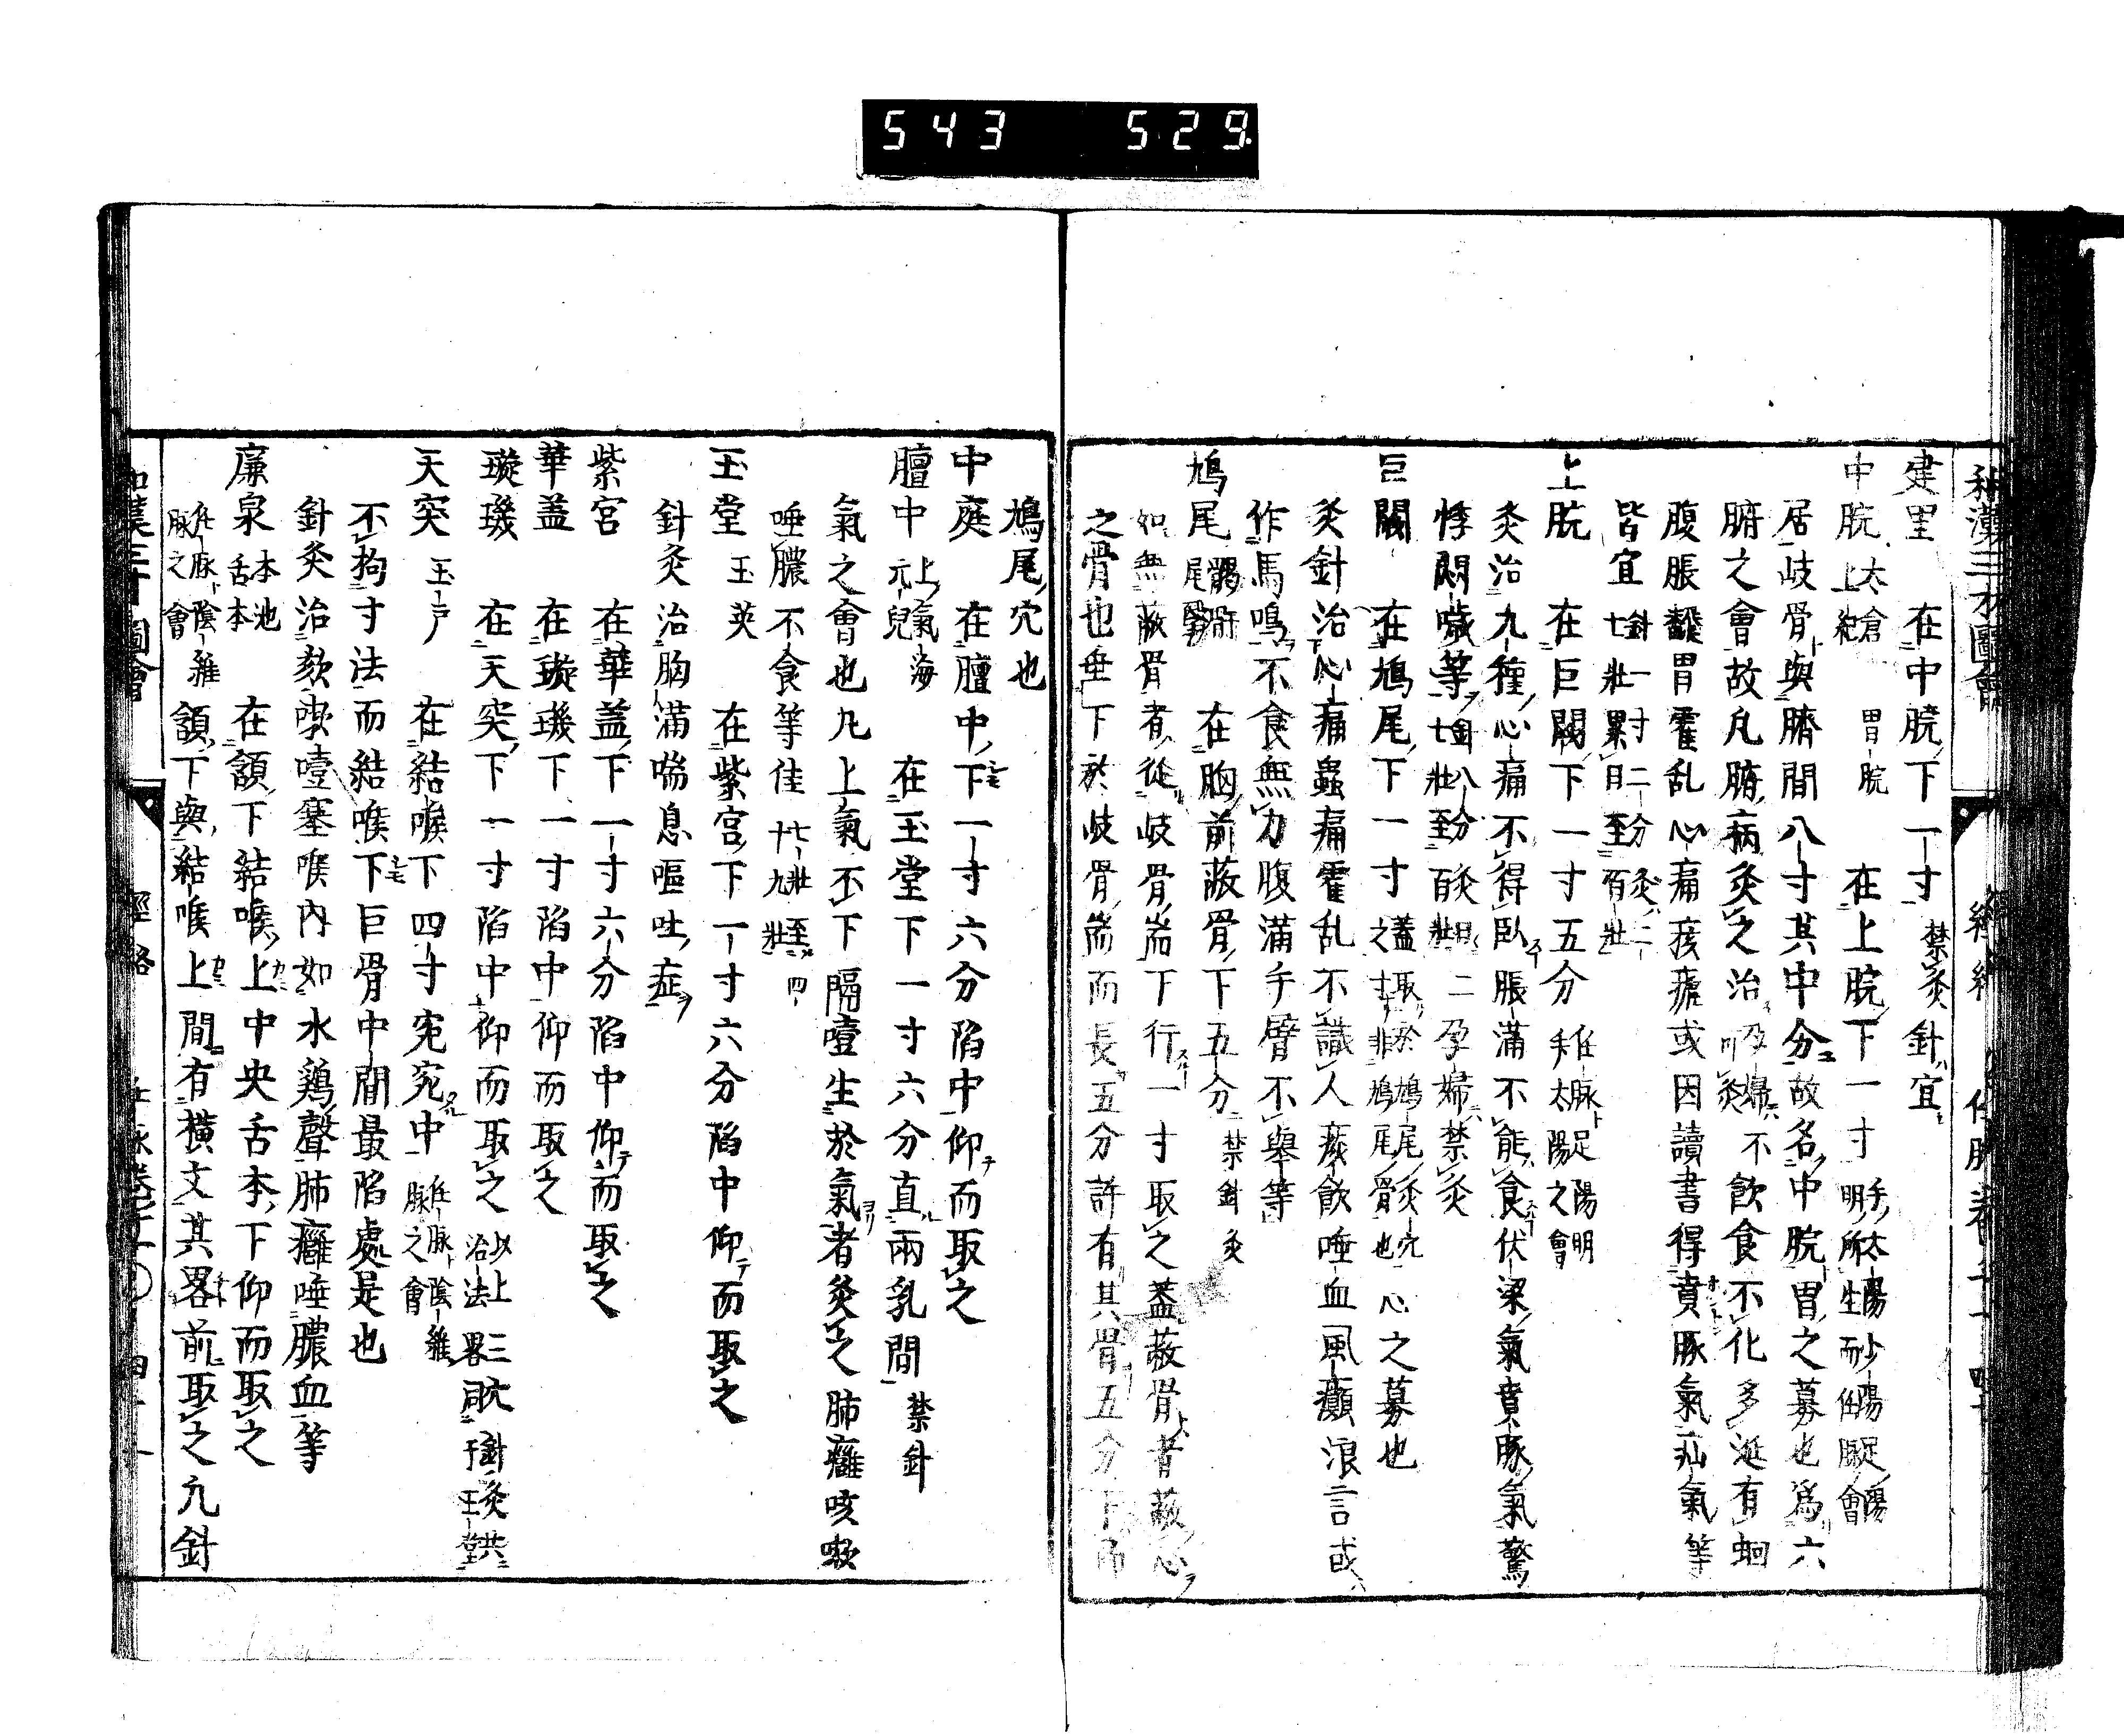 543 529
和漢三才圖會
建里 在中脘下一寸 禁灸針宜
中脘 太倉 上紀 胃脘 在上脘下一寸 手太陽少陽足陽明所生而任脈會
居岐骨與臍間八寸其中分故名中脘胃之募也為六
腑之會故凡腑病灸之治 孕婦不可灸 不飲食不化多涎有蛔
腹脹翻胃霍乱心痛痎瘧或因讀書得賁豚氣疝氣等
皆宜 針一寸二分灸二七壯累日至百壯
上脘 在巨闕下一寸五分 任脈足陽明手太陽之會
灸治九種心痛不得臥脹滿不能食伏梁氣賁豚氣驚
悸悶噦等 針八分灸二七壯至百壯 孕婦禁灸
巨闕 在鳩尾下一寸 蓋取於鳩尾灸穴之寸非鳩尾骨也 心之募也
灸針治心痛蟲痛霍乱不識人痰飲唾血風癲浪言或
作馬鳴不食無力腹滿手臂不舉等
鳩尾 𩩲骬 尾翳 在胸前蔽骨下五分 禁針灸
如無蔽骨者從岐骨耑下行一寸取之蓋蔽骨者蔽心
之骨也垂下於岐骨耑而長五分許有其骨五分下即
鳩尾穴也
中庭 在膻中下一寸六分陷中仰而取之
膻中 上氣海 元兒 在玉堂下一寸六分直兩乳間 禁針
氣之會也凡上氣不下隔噎生於氣者灸之肺癰咳嗽
唾膿不食等佳 七壯至四十九壯
玉堂 玉英 在紫宮下一寸六分陷中仰而取之
針灸治胸滿喘息嘔吐症
紫宮 在華盖下一寸六分陷中仰而取之
華盖 在璇璣下一寸陷中仰而取之
璇璣 在天突下一寸陷中仰而取之 以上三肮針灸共治法畧同于玉堂
天突 玉戸 在結喉下四寸宛宛中 任脈陰維脈之會
不拘寸法而結喉下巨骨中間最陷處是也
針灸治欬嗽噎塞喉內如水鶏聲肺癰唾膿血等
廉泉 本池 舌本 在頷下結喉上中央舌本下仰而取之
任脈陰維脈之會 頷下與結喉上間有横文其畧前取之凡針
和漢三才圖會 經絡 任脈 卷之十一 四十一